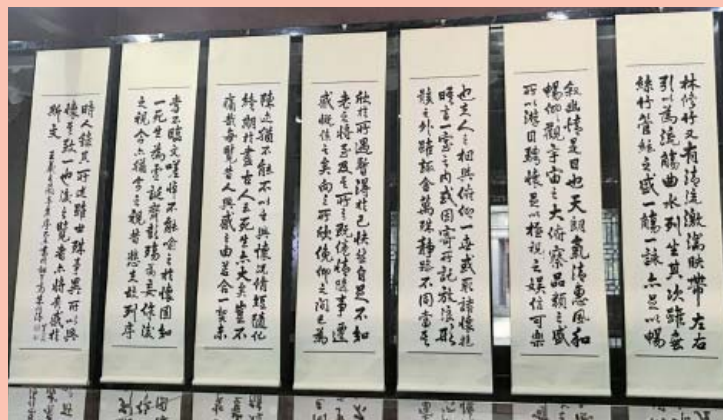 林修竹又有清流激湍映帶左右
引以為流觴曲水列坐其次雖無
絲竹管絃之盛一觴一詠亦足以暢
敘幽情是日也天朗氣清惠風和
暢仰觀宇宙之大俯察品類之盛
所以游目騁懷足以極視之娛信可樂
也夫人之相與俯仰一世或取諸懷抱
晤言一室之內或因寄所託放浪形
骸之外雖趣舍萬殊靜躁不同當其
欣於所遇暫得於己快然自足不知
老之將至及其所之既倦情隨事遷
感慨係之矣向之所欣俛仰之間已為
陳迹猶不能不以之興懷況脩短隨化
終期於盡古人云死生亦大矣豈不
痛哉每覽昔人興感之由若合一契未
嘗不臨文嗟悼不能喻之於懷固知
一死生為虛誕齊彭殤為妄作後
之視今亦猶今之視昔悲夫故列序
時人錄其所述雖世殊事異所以興
懷其致一也後之覽者亦將有感於
斯文 王羲之蘭亭集序